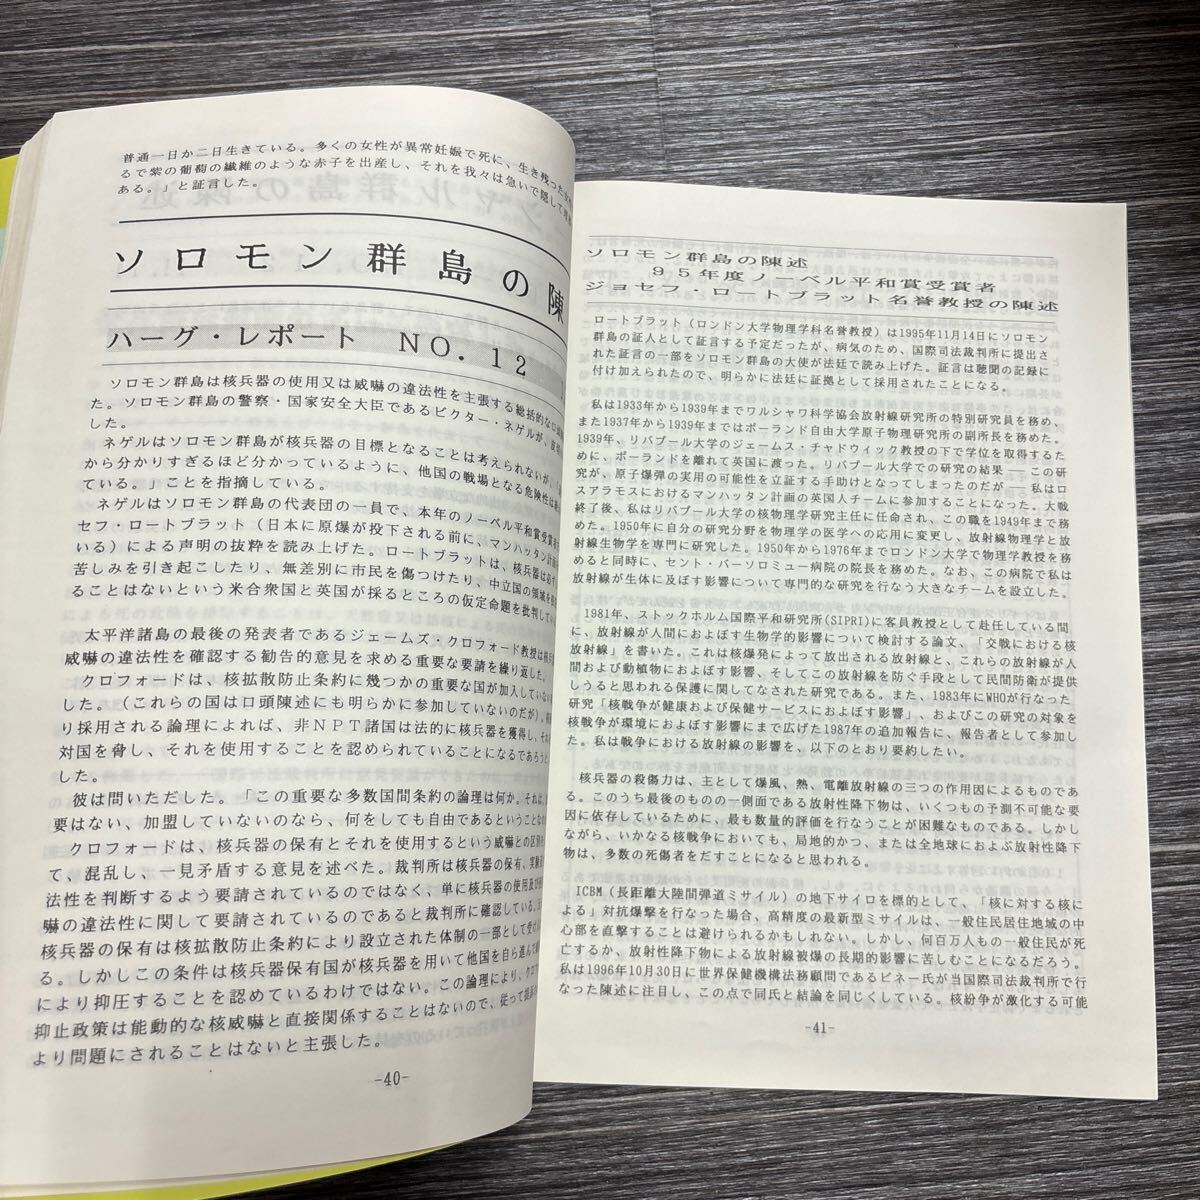 普通一日か二日生きている。多くの女性が異常妊娠で死に、生き残った
るで紫の葡萄の繊維のような赤子を出産し、それを我々は急いで隠して
ある。」と証言した。
ソロモン群島の陳
ハーグ・レポート NO. 12
ソロモン群島は核兵器の使用又は威嚇の違法性を主張する総括的な口頭
た。ソロモン群島の警察・国家安全大臣であるビクター・ネゲルが、
した。
ネゲルはソロモン群島が核兵器の目標となることは考えられないが、
から分かりすぎるほど分かっているように、他国の戦場となる危険性は
ている。」ことを指摘している。
ネゲルはソロモン群島の代表団の一員で、本年のノーベル平和賞受賞者
セフ・ロートブラット（日本に原爆が投下される前に、マンハッタン計画
いる）による声明の抜粋を読み上げた。ロートブラットは、核兵器は必ず
苦しみを引き起こしたり、無差別に市民を傷つけたり、中立国の領域を
ることはないという米合衆国と英国が採るところの仮定命題を批判してい
太平洋諸島の最後の発表者であるジェームズ・クロフォード教授は核兵
威嚇の違法性を確認する勧告的意見を求める重要な要請を繰り返した。
クロフォードは、核拡散防止条約に幾つかの重要な国が加入していない
した。（これらの国は口頭陳述にも明らかに参加していないのだが）。
り採用される論理によれば、非ＮＰＴ諸国は法的に核兵器を獲得し、それ
対国を脅し、それを使用することを認められていることになるであろうと
した。
彼は問いただした。「この重要な多数国間条約の論理は何か。それは、
要はない、加盟していないのなら、何をしても自由であるということなの
クロフォードは、核兵器の保有とそれを使用するという威嚇との区別を
て、混乱し、一見矛盾する意見を述べた。裁判所は核兵器の保有、実験
法性を判断するよう要請されているのではなく、単に核兵器の使用及び
嚇の違法性に関して要請されているのであると裁判所に確認している。
核兵器の保有は核拡散防止条約により設立された体制の一部として受け
る。しかしこの条件は核兵器保有国が核兵器を用いて他国を自ら進んで
により抑圧することを認めているわけではない。この論理により、クロ
抑止政策は能動的な核威嚇と直接関係することはないので、従って
より問題にされることはないと主張した。
-40-
ソロモン群島の陳述
９５年度ノーベル平和賞受賞者
ジョセフ・ロートブラット名誉教授の陳述
ロートブラット（ロンドン大学物理学科名誉教授）は1995年11月14日にソロモン
群島の証人として証言する予定だったが、病気のため、国際司法裁判所に提出さ
れた証言の一部をソロモン群島の大使が法廷で読み上げた。証言は聴聞の記録に
付け加えられたので、明らかに法廷に証拠として採用されたことになる。
私は1933年から1939年までワルシャワ科学協会放射線研究所の特別研究員を務め、
また1937年から1939年まではポーランド自由大学原子物理研究所の副所長を務めた。
1939年、リバプール大学のジェームス・チャドウィック教授の下で学位を取得するた
めに、ポーランドを離れて英国に渡った。リバプール大学での研究の結果 ── この研
究が、原子爆弾の実用の可能性を立証する手助けとなってしまったのだが ── 私はロ
スアラモスにおけるマンハッタン計画の英国人チームに参加することになった。大戦
終了後、私はリバプール大学の核物理学研究主任に任命され、この職を1949年まで務
めた。1950年に自分の研究分野を物理学の医学への応用に変更し、放射線物理学と放
射線生物学を専門に研究した。1950年から1976年までロンドン大学で物理学教授を務
めると同時に、セント・バーソロミュー病院の院長を務めた。なお、この病院で私は
放射線が生体に及ぼす影響について専門的な研究を行なう大きなチームを設立した。
1981年、ストックホルム国際平和研究所(SIPRI)に客員教授として赴任している間
に、放射線が人間におよぼす生物学的影響について検討する論文、「交戦における核
放射線」を書いた。これは核爆発によって放出される放射線と、これらの放射線が人
間および動植物におよぼす影響、そしてこの放射線を防ぐ手段として民間防衛が提供
しうると思われる保護に関してなされた研究である。また、1983年にWHOが行なった
研究「核戦争が健康および保健サービスにおよぼす影響」、およびこの研究の対象を
核戦争が環境におよぼす影響にまで広げた1987年の追加報告に、報告者として参加し
た。私は戦争における放射線の影響を、以下のとおり要約したい。
核兵器の殺傷力は、主として爆風、熱、電離放射線の三つの作用因によるものであ
る。このうち最後のものの一側面である放射性降下物は、いくつもの予測不可能な要
因に依存しているために、最も数量的評価を行なうことが困難なものである。しかし
ながら、いかなる核戦争においても、局地的かつ、または全地球におよぶ放射性降下
物は、多数の死傷者をだすことになると思われる。
ICBM（長距離大陸間弾道ミサイル）の地下サイロを標的として、「核に対する核に
よる」対抗爆撃を行なった場合、高精度の最新型ミサイルは、一般住民居住地域の中
心部を直撃することは避けられるかもしれない。しかし、何百万人もの一般住民が死
亡するか、放射性降下物による放射線被爆の長期的影響に苦しむことになるだろう。
私は1996年10月30日に世界保健機構法務顧問であるビネー氏が当国際司法裁判所で行
なった陳述に注目し、この点で同氏と結論を同じくしている。核紛争が激化する可能
-41-